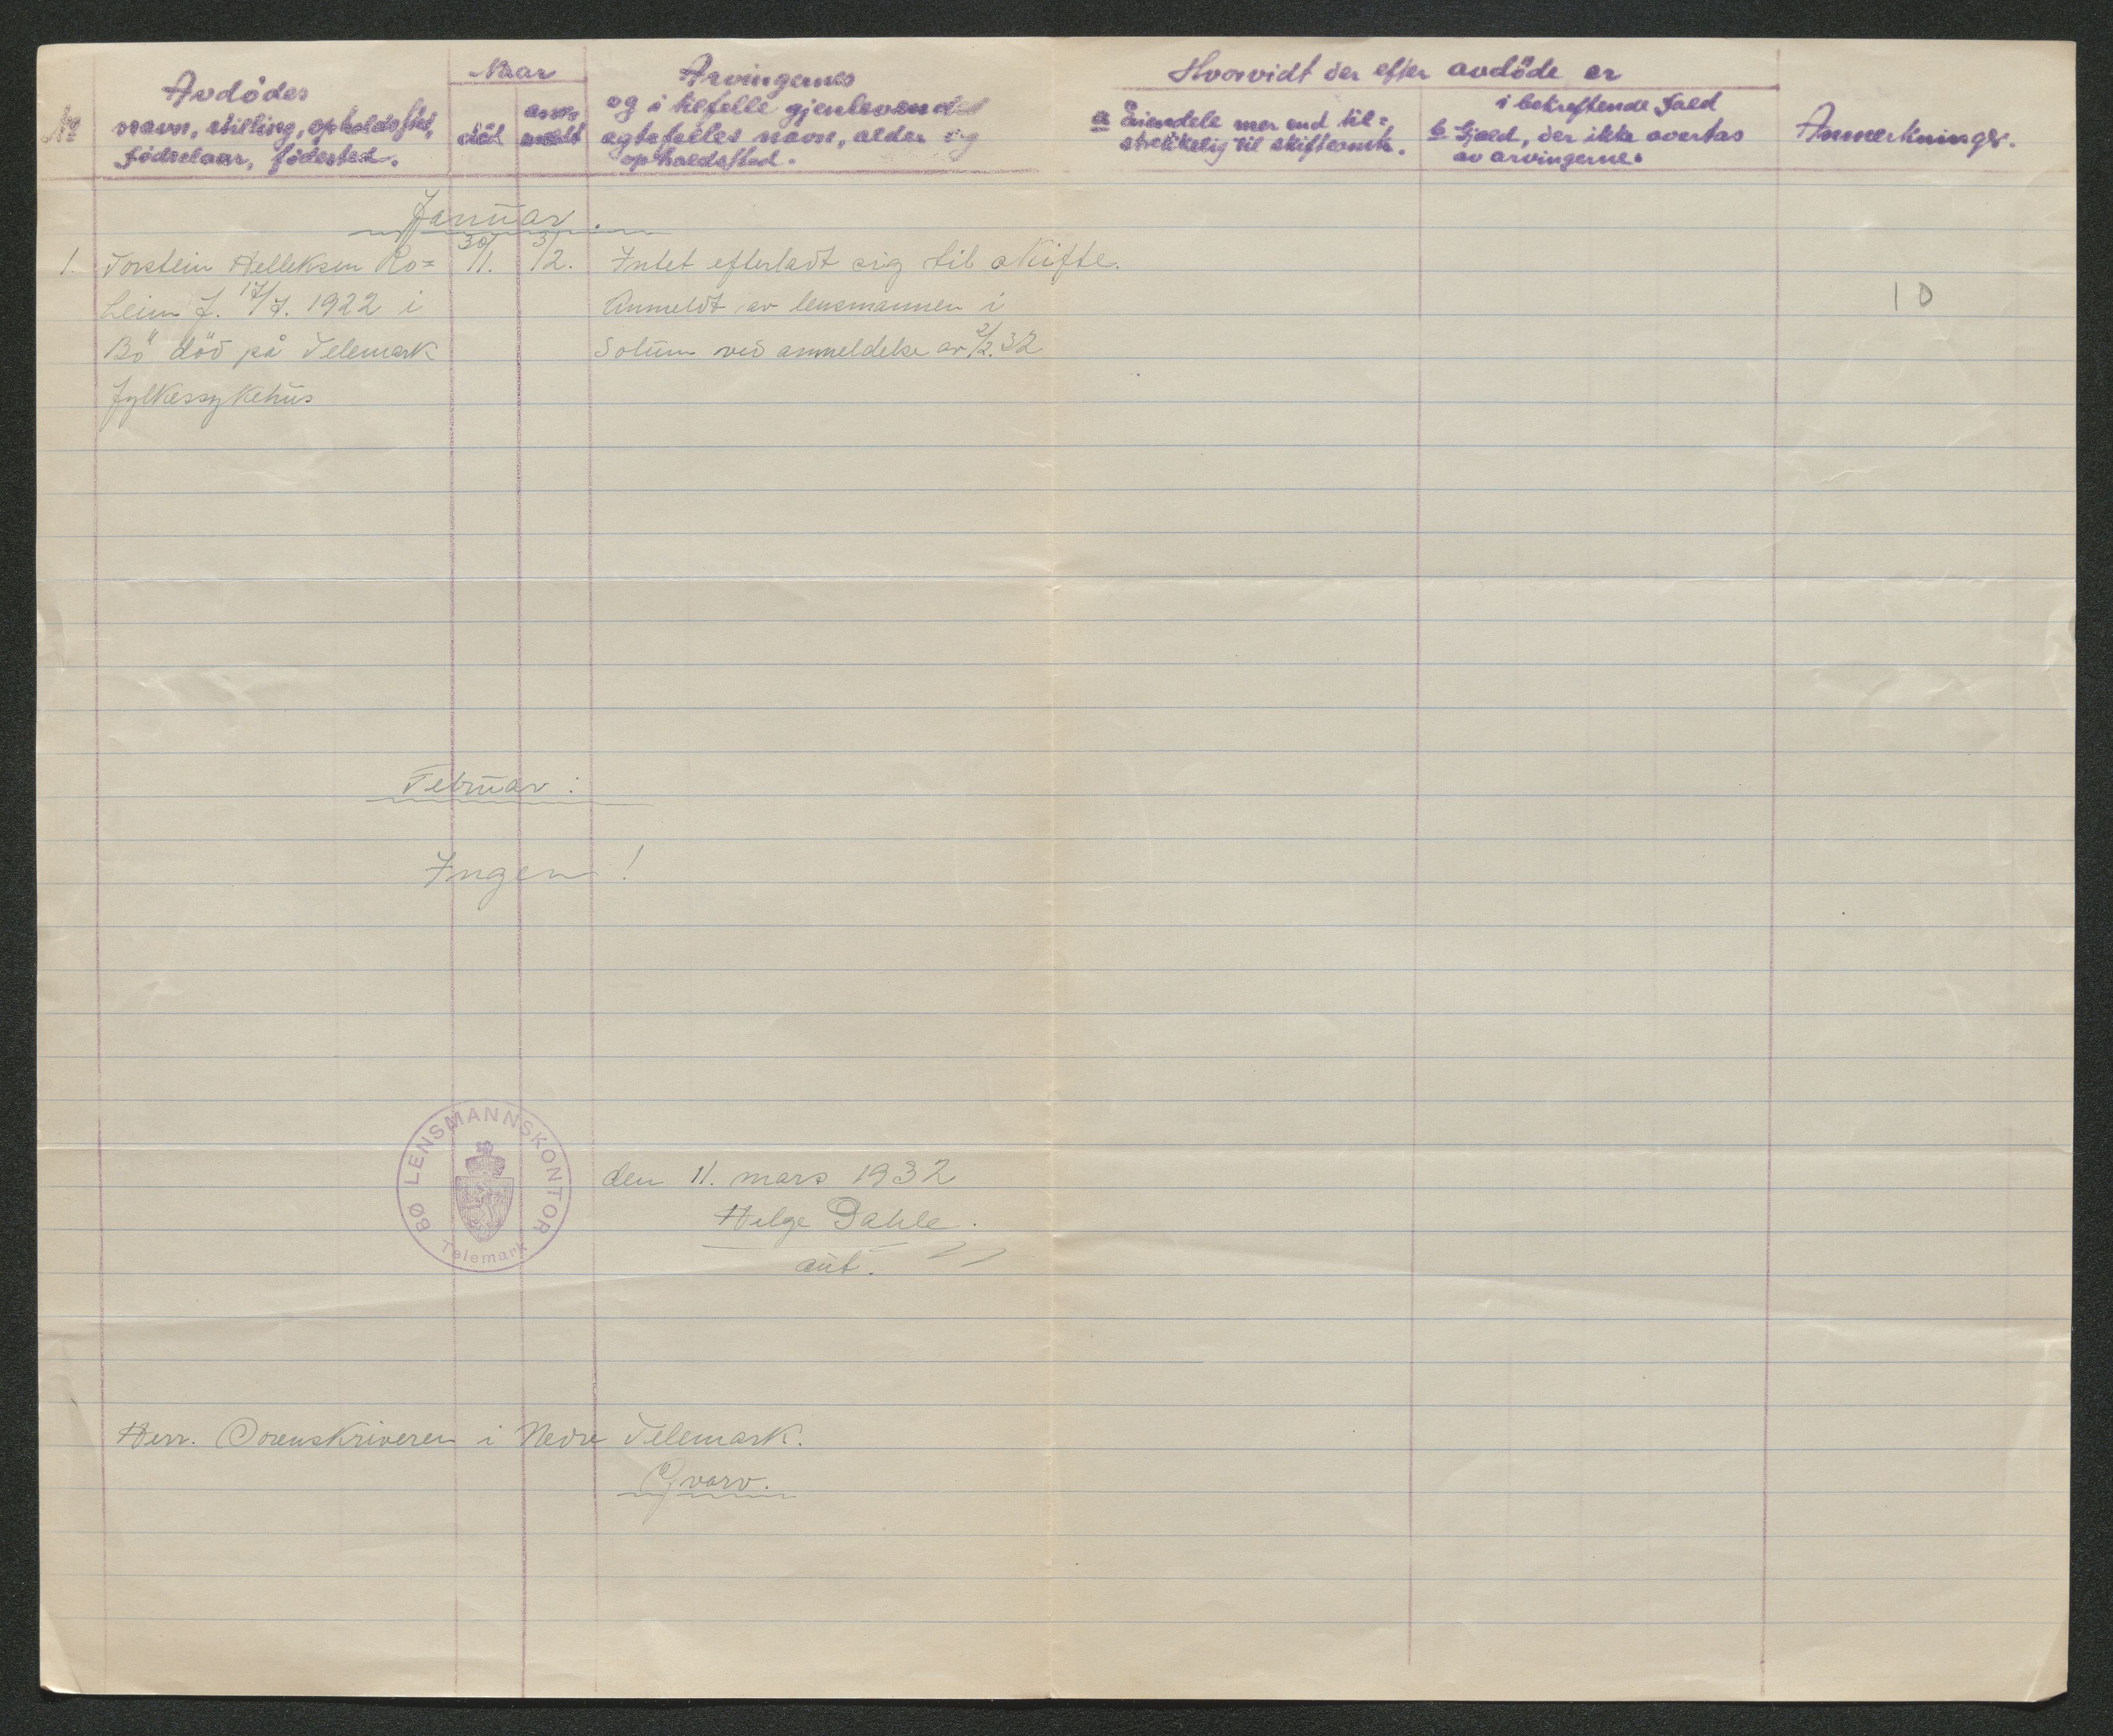 Nº
Avdödes
navn, stilling, opholdssted,
födselaar, födested.
Naar
död
anmeldt
Arvingernes
og i tilfelle gjenlevendes
egtefelles navn, alder og
opholdssted.
Hvorvidt der efter avdöde er
a eiendele mer end til=
strekkelig til skifteomk.
i bekreftende fald
b Gjæld, der ikke overtas
av arvingerne.
Anmerkninger.
Januar.
1. Torstein Helleksen Ro= 30/1. 3/2. Intet efterladt sig til skifte.
leim f. 17/7. 1922 i Anmeldt av lensmannen i
1 D
Bö död på Telemark Solum ved anmeldelse av 2/2. 32
fylkessykehus
Februar:
Ingen!
BØ LENSMANNSKONTOR
Telemark
den 11. mars 1932
Helge Dahle.
aut.
Herr. Sorenskriveren i Nedre Telemark.
Gvarv.